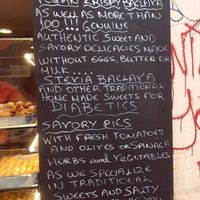 VEGAN KRISPY BACLAVA
AS WELL AS MORE THAN
100 !!! GENUINE
AUTHENTIC SWEET AND
SAVORY DELICACIES MADE
WITHOUT EGGS, BUTTER OR
MILK.
STEVIA BACLAVA
AND OTHER TRADITIONAL
HOME MADE SWEETS FOR
DIABETICS
SAVORY PIES
WITH FRESH TOMATOES
AND OLIVES OR SPANACH
HERBS and VEGETABLES
AS WE SPECIALIZE
IN TRADITIONAL
SWEETS AND SALTY
AS YOU